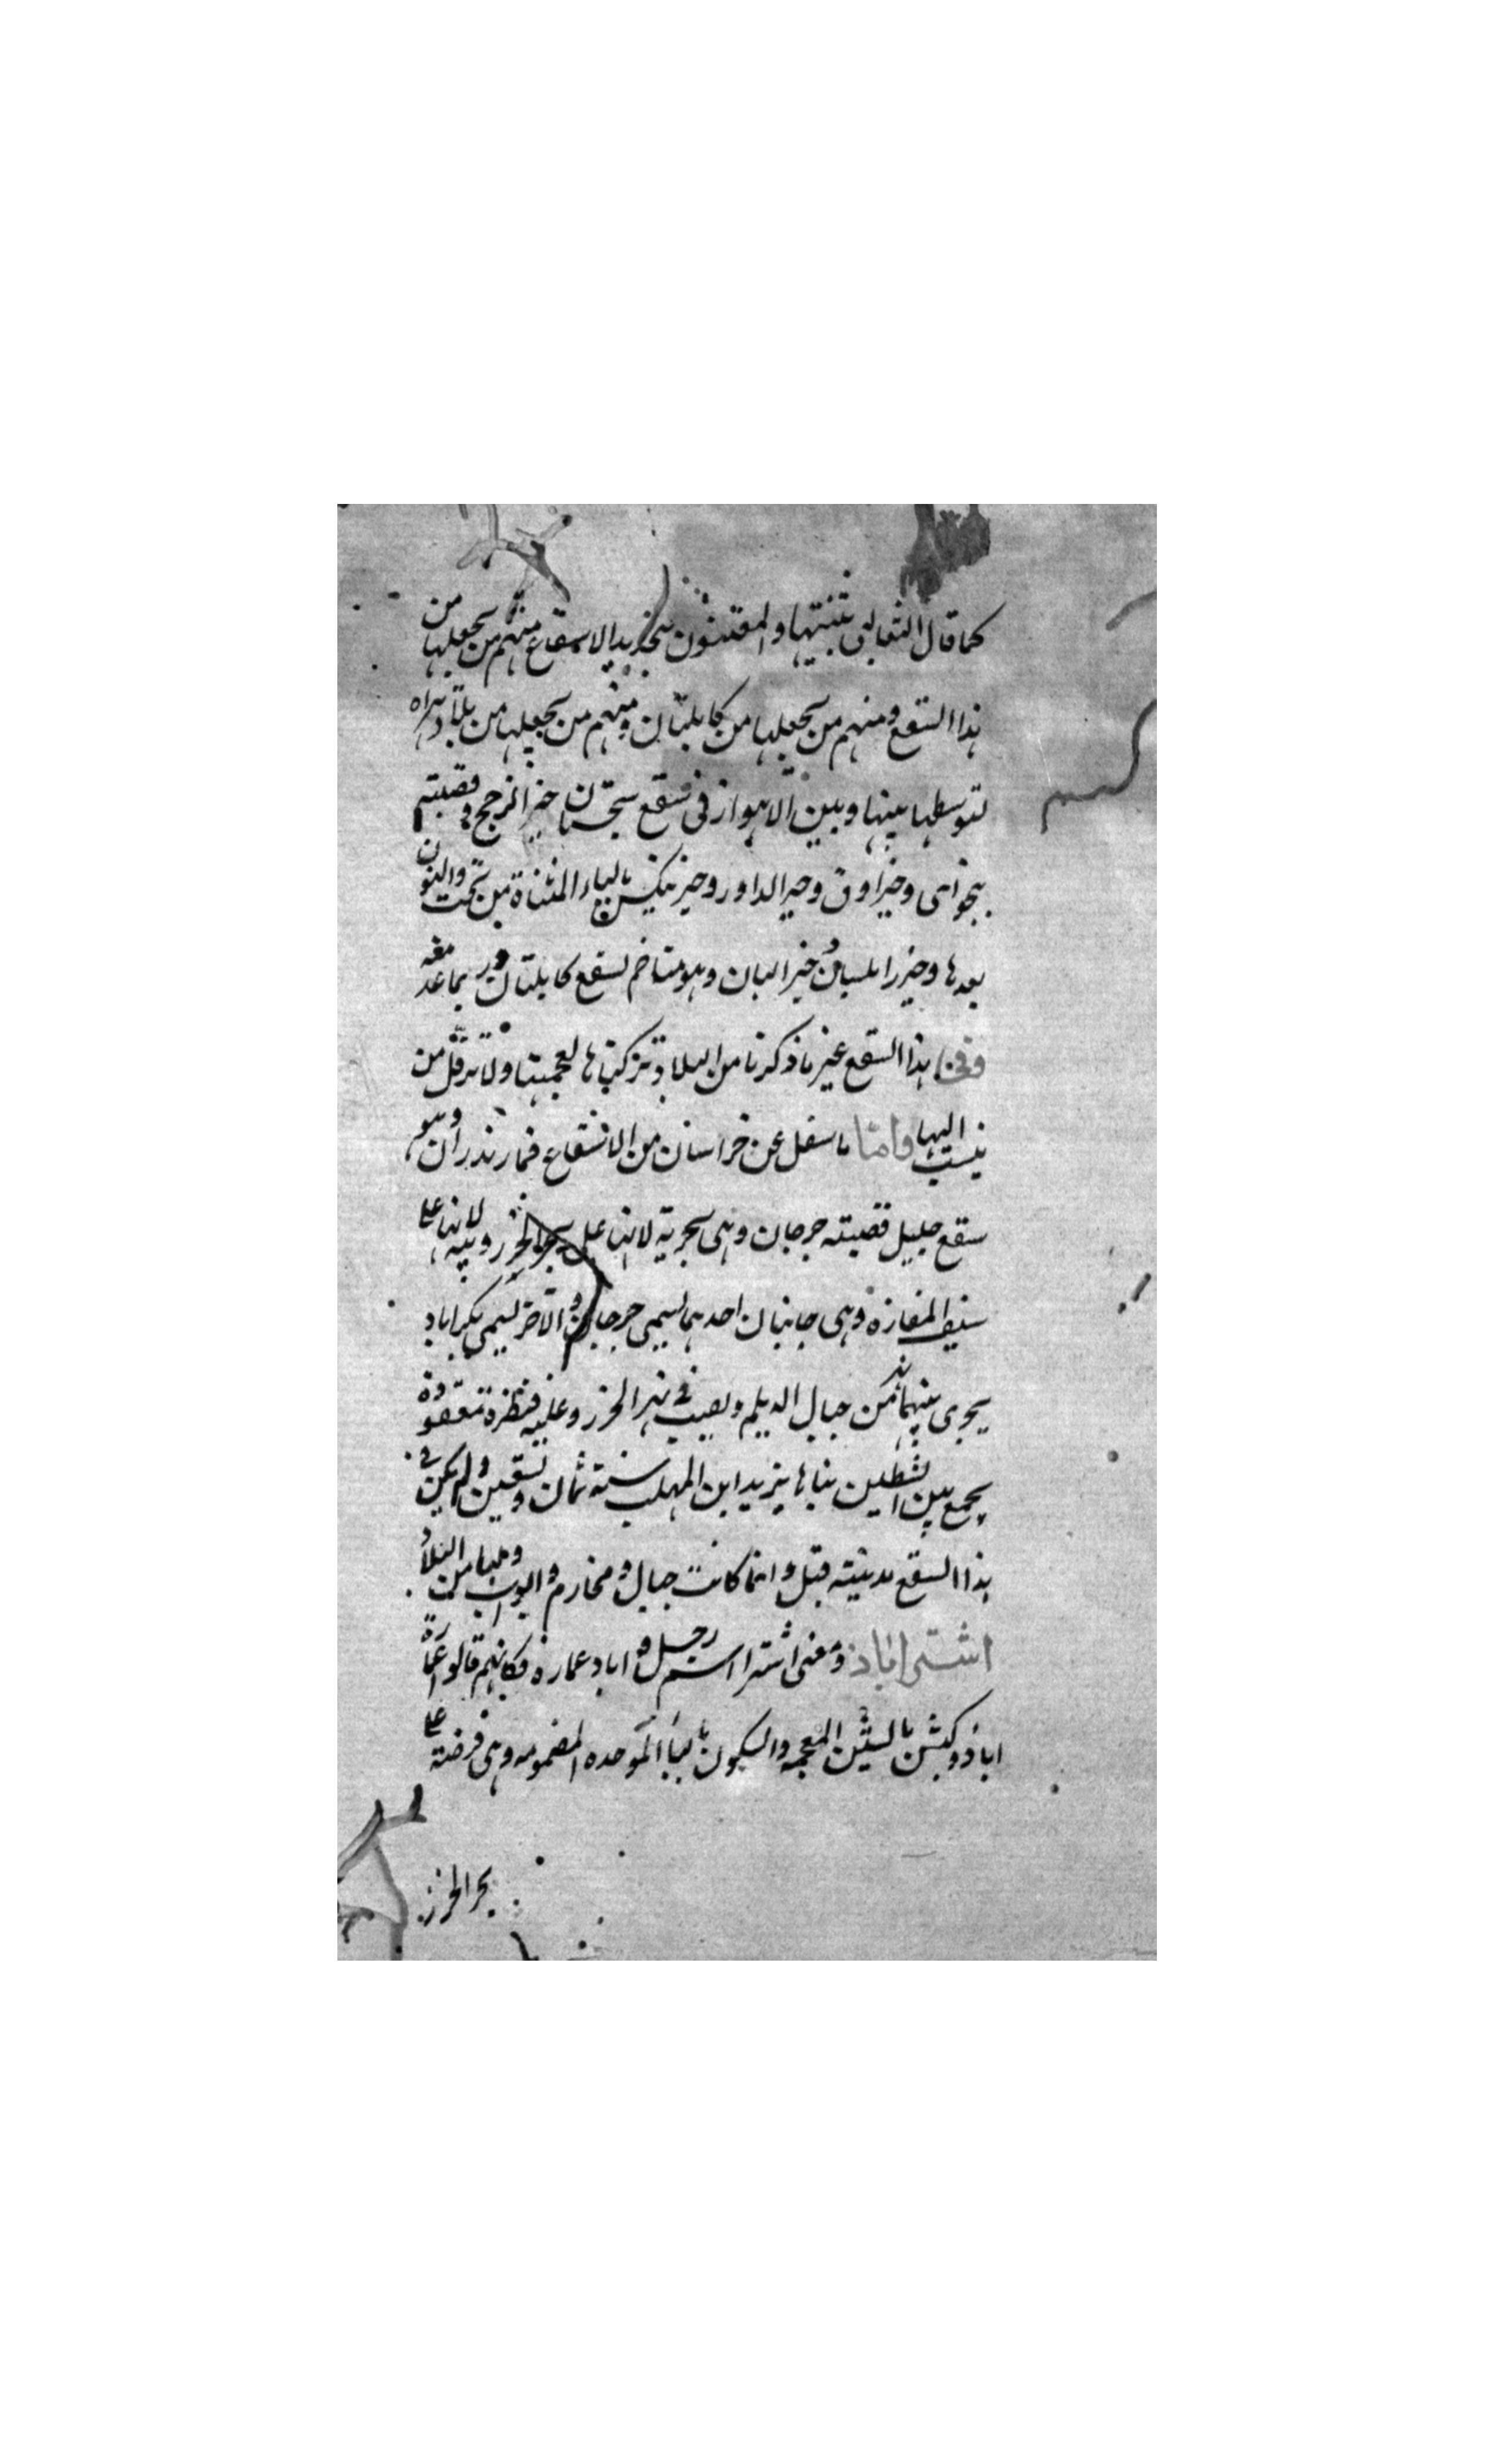 كما قال الثعالبي تثنيتها والمعتنون بتحديد الاسقاع منهم من يجعلها من
هذا السقع ومنهم من يجعلها من كابلتان ومنهم من يجعلها من بلاد هراه
لتوسطها بينها وبين الاهواز في سقع سجستان خير الرجح وقصبته
بنجواى وخير اوق وحير الداور وخير نيكس بالياء المثناة من تحت والنون
بعدها وخير رابلسيان وخير البان وهو متاخم لسقع كابلتان وربما عد معه
وفي هذا السقع غير ما ذكرنا من البلاد تركناها لعجميتها ولانه قل من
ينسب اليها واما ما سفل عن خراسان من الاسقاع فمازندران وهو
سقع جليل قصبته جرجان وهى بحرية لانها على بحر الخزر وبريه لانها على
سيف المفازة وهى جانبان احدهما يسمى جرجان والاخر يسمى بكراباد
يجرى بينهما نهر من جبال الديلم ويصب في بحر الخزر وعليه قنطرة معقودة
يجمع بين الشطين بناها يزيد ابن المهلب سنة ثمان وتسعين ولم يكن في
هذا السقع مدينة قبل وانما كانت جبال ومخارم وابواب وبها من البلاد
اشتراباذ ومعنى اشترا اسم رجل واباد عمارة فكانهم قالوا عمارة
اباذوكبشن بالشين المعجمه والسكون بالباء الموحده المضمومه وهى فرضة على
بحر الخزر